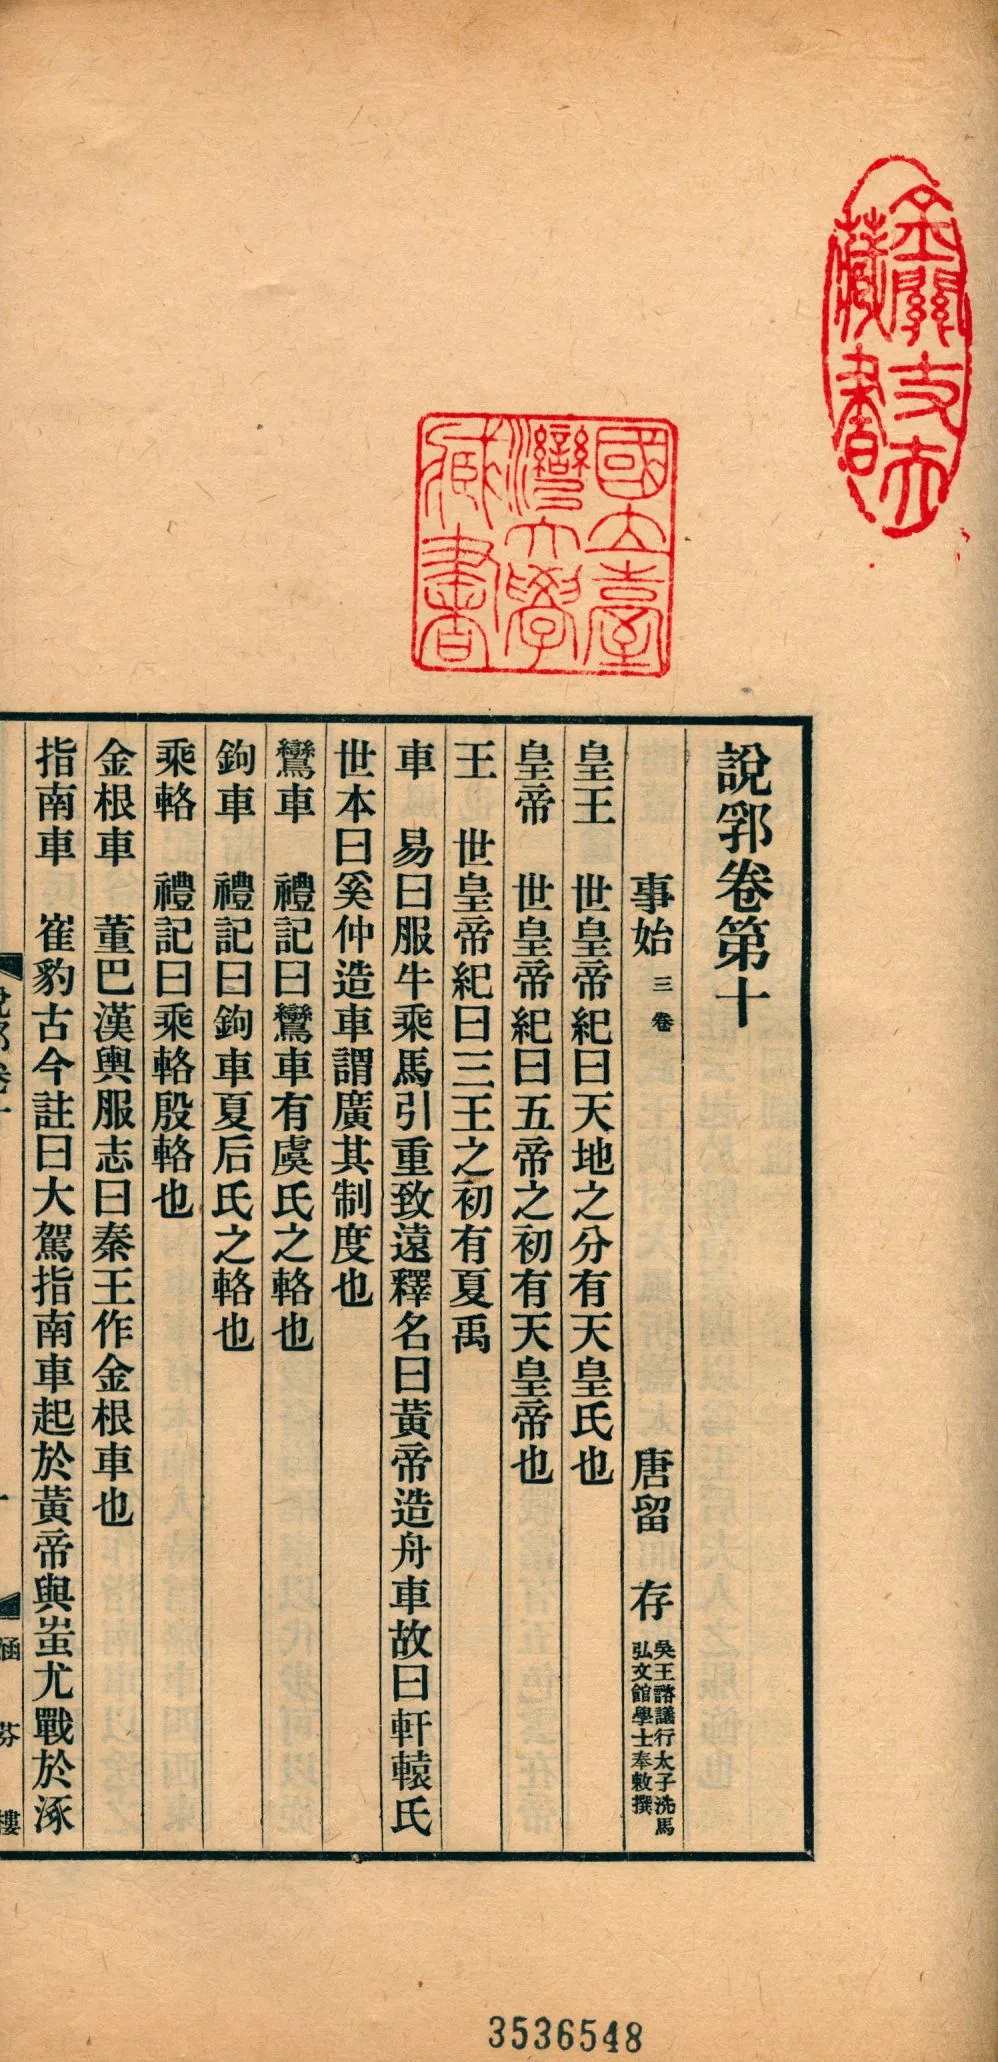 說郛卷第十
事始 三卷 唐留 存 吳王諮議行太子洗馬弘文館學士奉敕撰
皇王 世皇帝紀曰天地之分有天皇氏也
皇帝 世皇帝紀曰五帝之初有天皇帝也
王 世皇帝紀曰三王之初有夏禹
車 易曰服牛乘馬引重致遠釋名曰黃帝造舟車故曰軒轅氏
世本曰奚仲造車謂廣其制度也
鸞車 禮記曰鸞車有虞氏之輅也
鉤車 禮記曰鉤車夏后氏之輅也
乘輅 禮記曰乘輅殷輅也
金根車 董巴漢輿服志曰秦王作金根車也
指南車 崔豹古今註曰大駕指南車起於黃帝與蚩尤戰於涿
說郛卷十
一
涵芬樓
國立臺
灣大學
藏書
藏書
3536548